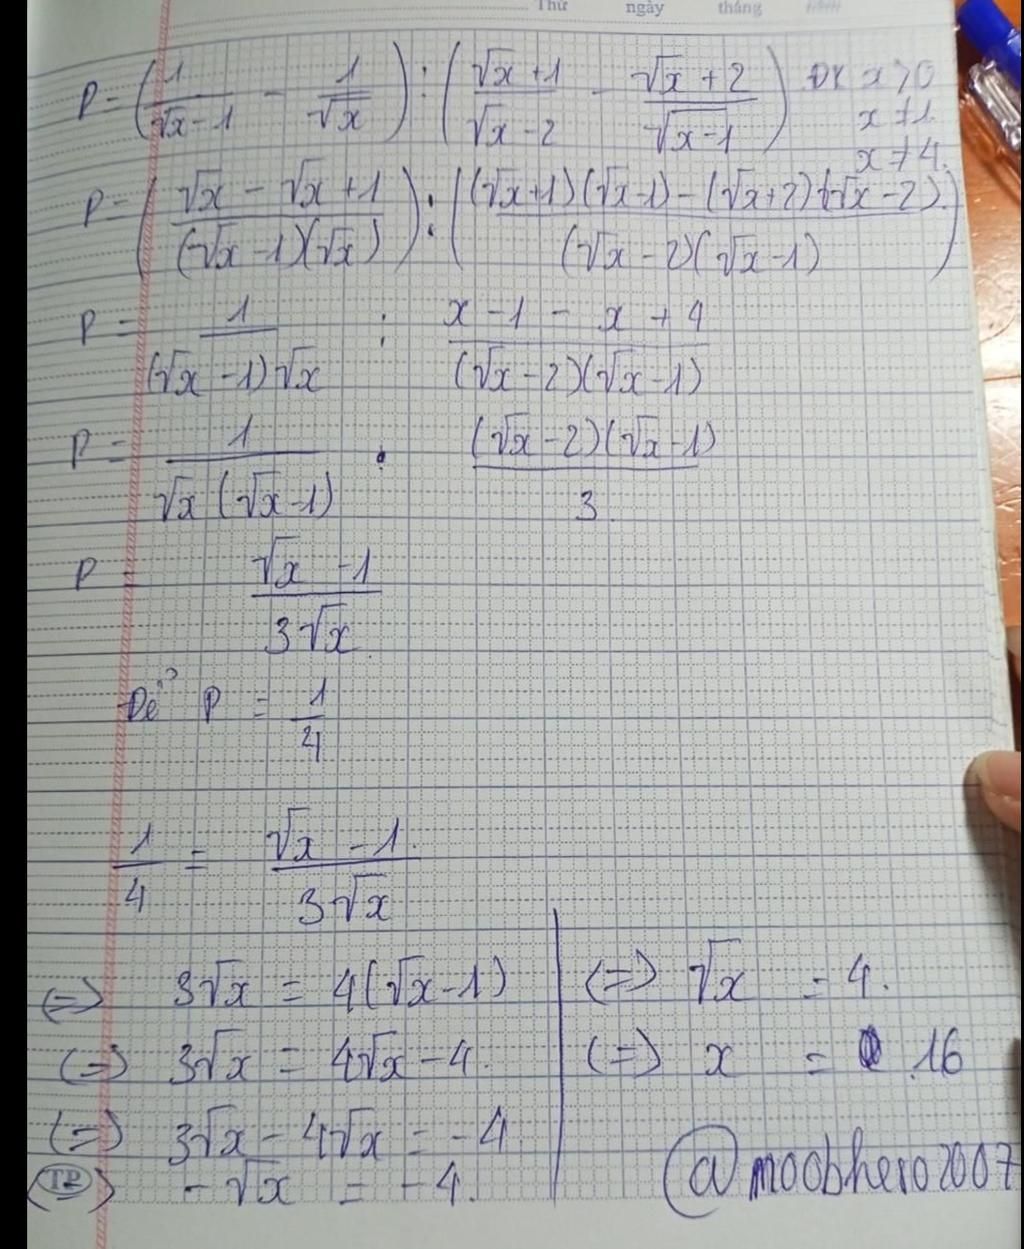 Thứ ngày tháng
P = (1/(√x - 1) - 1/√x) : ((√x + 1)/(√x - 2) - (√x + 2)/(√x-1)) ĐK x > 0
x ≠ 1
x ≠ 4.
P = ((√x - √x + 1)/((√x - 1)(√x))) : (((√x+1)(√x-1) - (√x+2)(√x-2))/((√x - 2)(√x - 1)))
P = 1/((√x - 1)√x) : (x - 1 - x + 4)/((√x - 2)(√x - 1))
P = 1/(√x (√x - 1)) . ((√x - 2)(√x - 1))/3.
P = (√x - 1)/(3√x)
Để P = 1/4
1/4 = (√x - 1)/(3√x)
(=) 3√x = 4(√x - 1)
(=) 3√x = 4√x - 4.
(=) 3√x - 4√x = -4
(TP) -√x = -4.
(=) √x = 4.
(=) x = 16
@moobhero2007